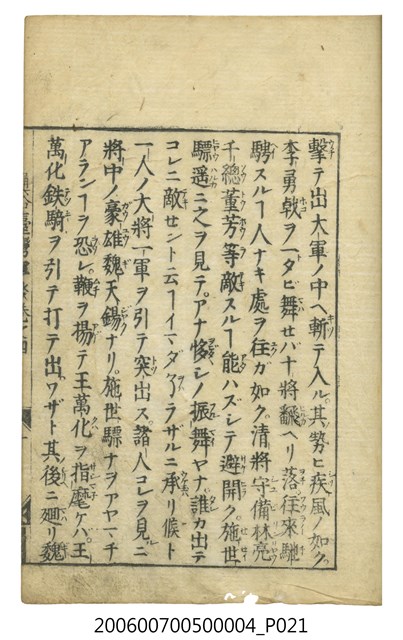 擊テ出大軍ノ中ヘ斬テ入ル其勢ヒ疾風ノ如ク
李勇戟ヲ一タビ舞セバ十將飜ヘリ落往來馳
騁スルヿ人ナキ處ヲ往ガ如ク清將守備林亮
千總董芳等敵スルヿ能ハズシテ避開ク施世
驃遥ニ之ヲ見テアナ怪シノ振舞ヤナ誰カ出テ
コレニ敵セントニ云ヿイマダ了ラサルニ承リ候ト
一人ノ大將一軍ヲ引テ突出ス諸人コレヲ見ニ
將中ノ豪雄魏天錫ナリ施世驃ナヲアヤマチ
アランヿヲ恐レ鞭ヲ揚テ王萬化ヲ指麾ケバ王
萬化鉄騎ヲ引テ打テ出ワザト其後ニ廻リ魏
200600700500004_P021